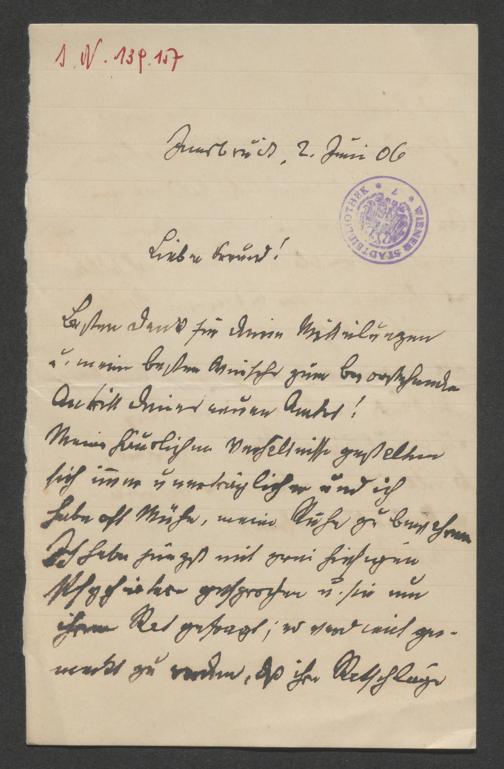 I. N. 139.157
Innsbruck, 2. Juni 06
WIENER STADTBIBLIOTHEK
Lieber Freund!
Besten Dank für Deine Mitteilungen
u. meine besten Wünsche zum bevorstehenden
Antritt Deines neuen Amtes!
Meine häuslichen Verhältnisse gestalten
sich immer unerträglicher und ich
habe oft Mühe, meine Ruhe zu bewahren.
Ich habe jüngst mit zwei hiesigen
Psychiatern gesprochen u. sie um
ihren Rat gefragt; es
zu werden, daß ihre Ratschläge